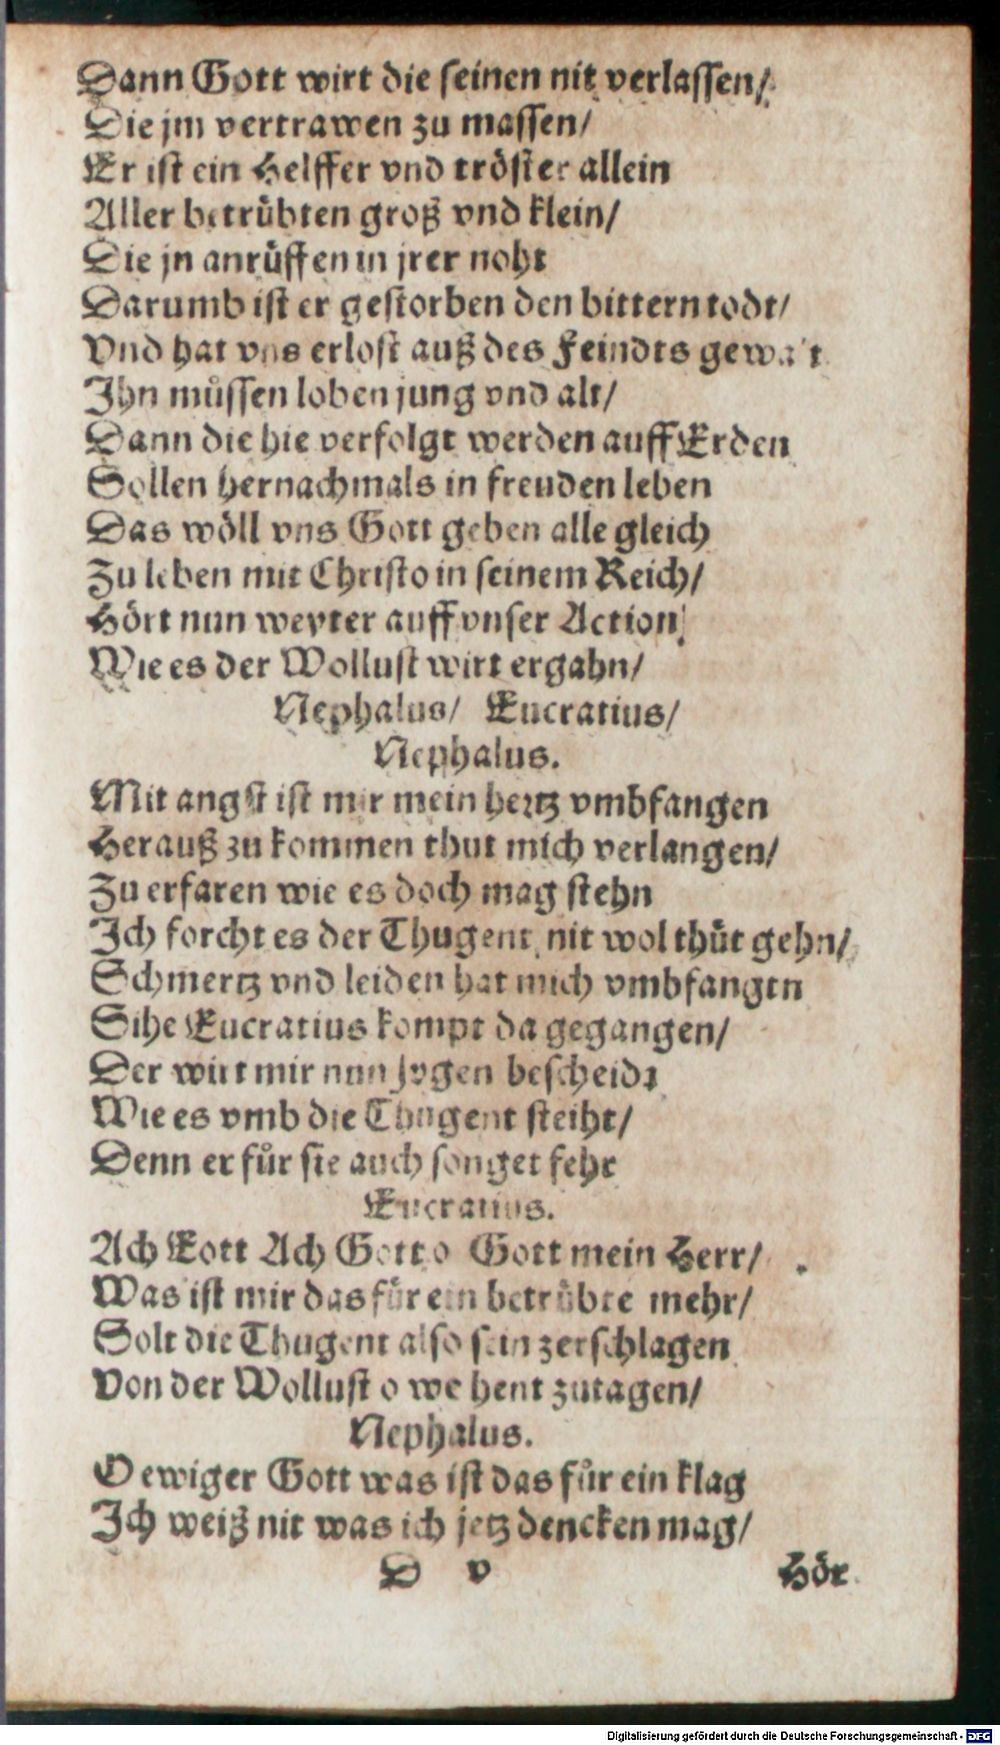 Dann Gott wirt die seinen nit verlassen/
Die jm vertrawen zu massen/
Er ist ein Helffer vnd tröster allein
Aller betrübten groß vnd klein/
Die jn anrüffen in jrer noht
Darumb ist er gestorben den bittern todt/
Vnd hat vns erlost auß des Feindts gewa't
Ihn müssen loben jung vnd alt/
Dann die hie verfolgt werden auff Erden
Sollen hernachmals in freuden leben
Das wöll vns Gott geben alle gleich
Zu leben mit Christo in seinem Reich/
Hört nun weyter auff vnser Action/
Wie es der Wollust wirt ergahn/
Nephalus/ Eucratius/
Nephalus.
Mit angst ist mir mein hertz vmbfangen
Herauß zu kommen thut mich verlangen/
Zu erfaren wie es doch mag stehn
Ich forcht es der Thugent nit wol thüt gehn/
Schmertz vnd leiden hat mich vmbfangen
Sihe Eucratius kompt da gegangen/
Der wirt mir nun bescheidt
Wie es vmb die Thugent steiht/
Denn er für sie auch sorget sehr
Eucratius.
Ach Eott Ach Gott o Gott mein Herr/
Was ist mir das für ein betrübte mehr/
Solt die Thugent also sein zerschlagen
Von der Wollust o we hent zutagen/
Nephalus.
O ewiger Gott was ist das für ein klag
Ich weiß nit was ich jetz dencken mag/
D v Hör
Digitalisierung gefördert durch die Deutsche Forschungsgemeinschaft - DFG